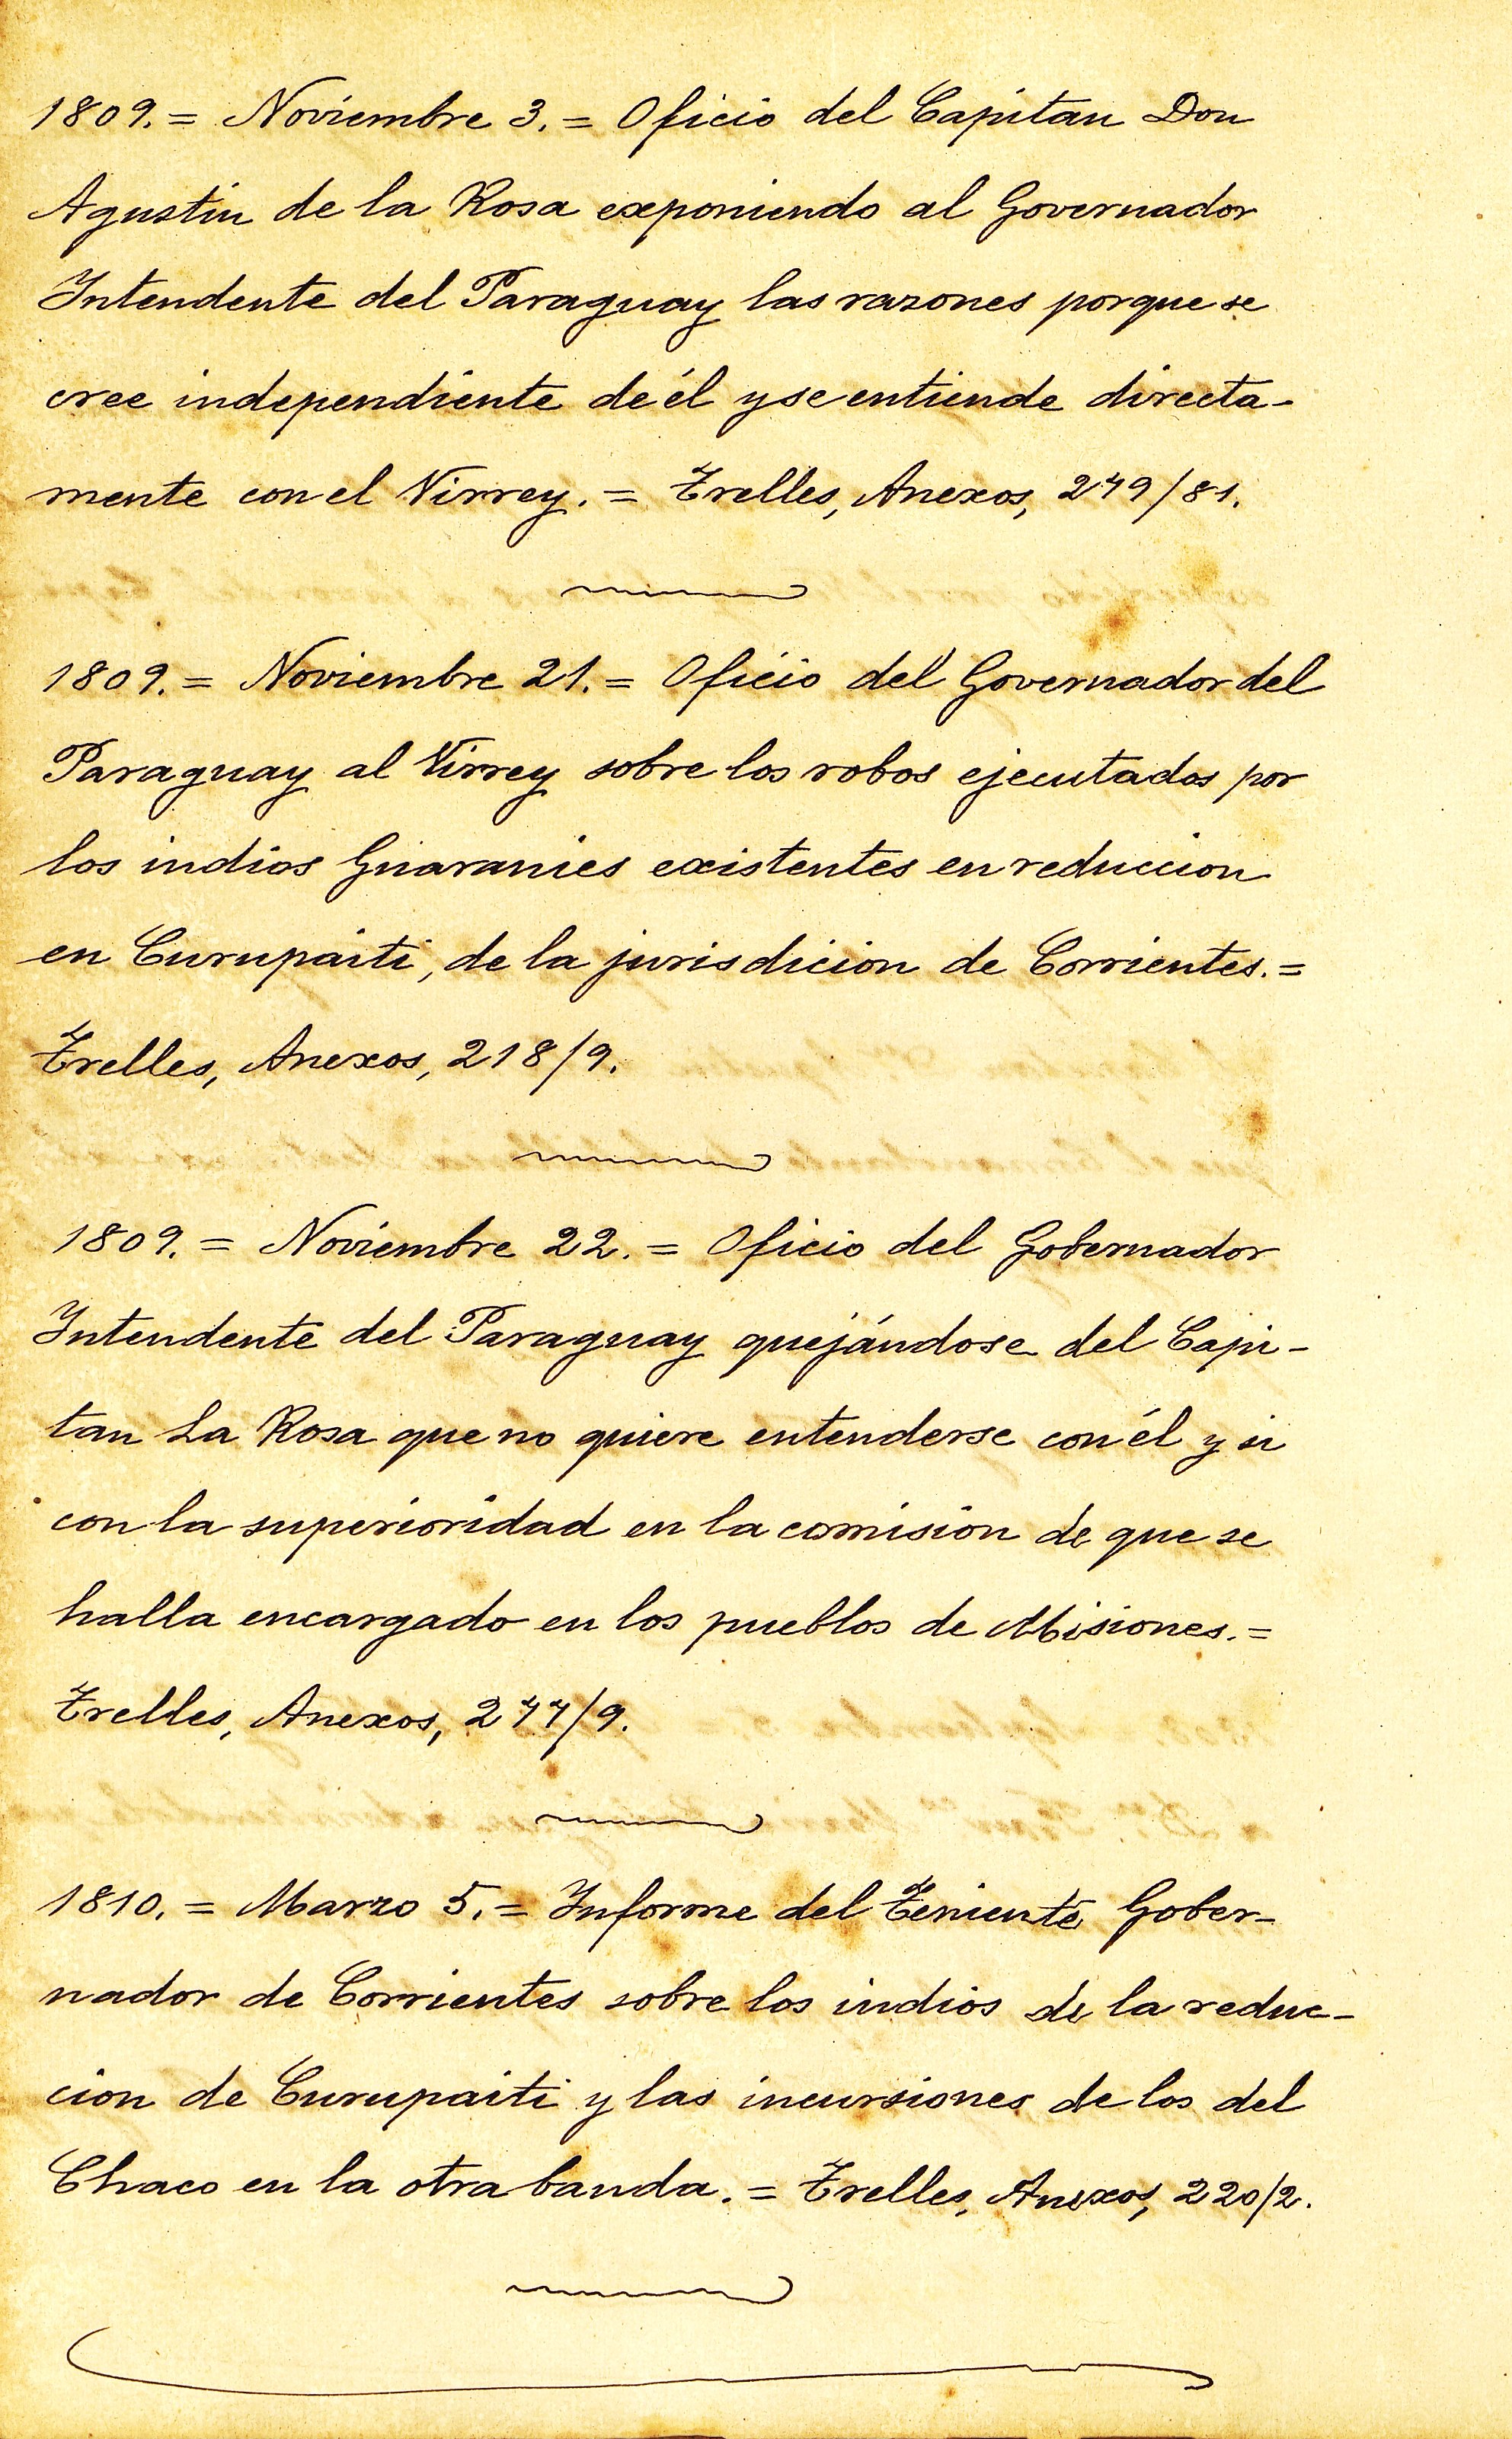 1809. = Noviembre 3. = Oficio del Capitan Don
Agustin de la Rosa exponiendo al Governador
Intendente del Paraguay las razones porque se
cree independiente de él y se entiende directa-
mente con el Virrey. = Trelles, Anexos, 279/81.
1809. = Noviembre 21. = Oficio del Governador del
Paraguay al Virrey sobre los robos ejecutados por
los indios Guaranies existentes en reduccion
en Curupaiti, de la jurisdicion de Corrientes. =
Trelles, Anexos, 218/9.
1809. = Noviembre 22. = Oficio del Gobernador
Intendente del Paraguay quejándose del Capi-
tan La Rosa que no quiere entenderse con él y si
con la superioridad en la comision de que se
halla encargado en los pueblos de Misiones. =
Trelles, Anexos, 277/9.
1810. = Marzo 5. = Informe del Teniente Gober-
nador de Corrientes sobre los indios de la reduc-
cion de Curupaiti y las incursiones de los del
Chaco en la otra banda. = Trelles, Anexos, 220/2.